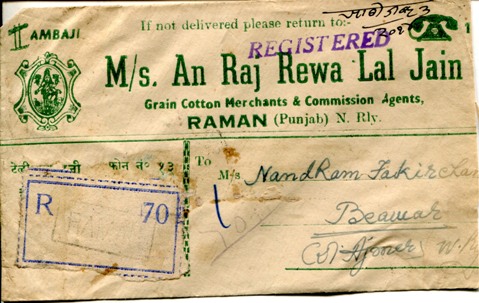 If not delivered please return to:-
AMBAJI
REGISTERED
M/s. An Raj Rewa Lal Jain
Grain Cotton Merchants & Commission Agents,
RAMAN (Punjab) N. Rly.
फोन नं० १३
To
M/s NandRam Fakirchan
Beawar
Ajmer
R 70